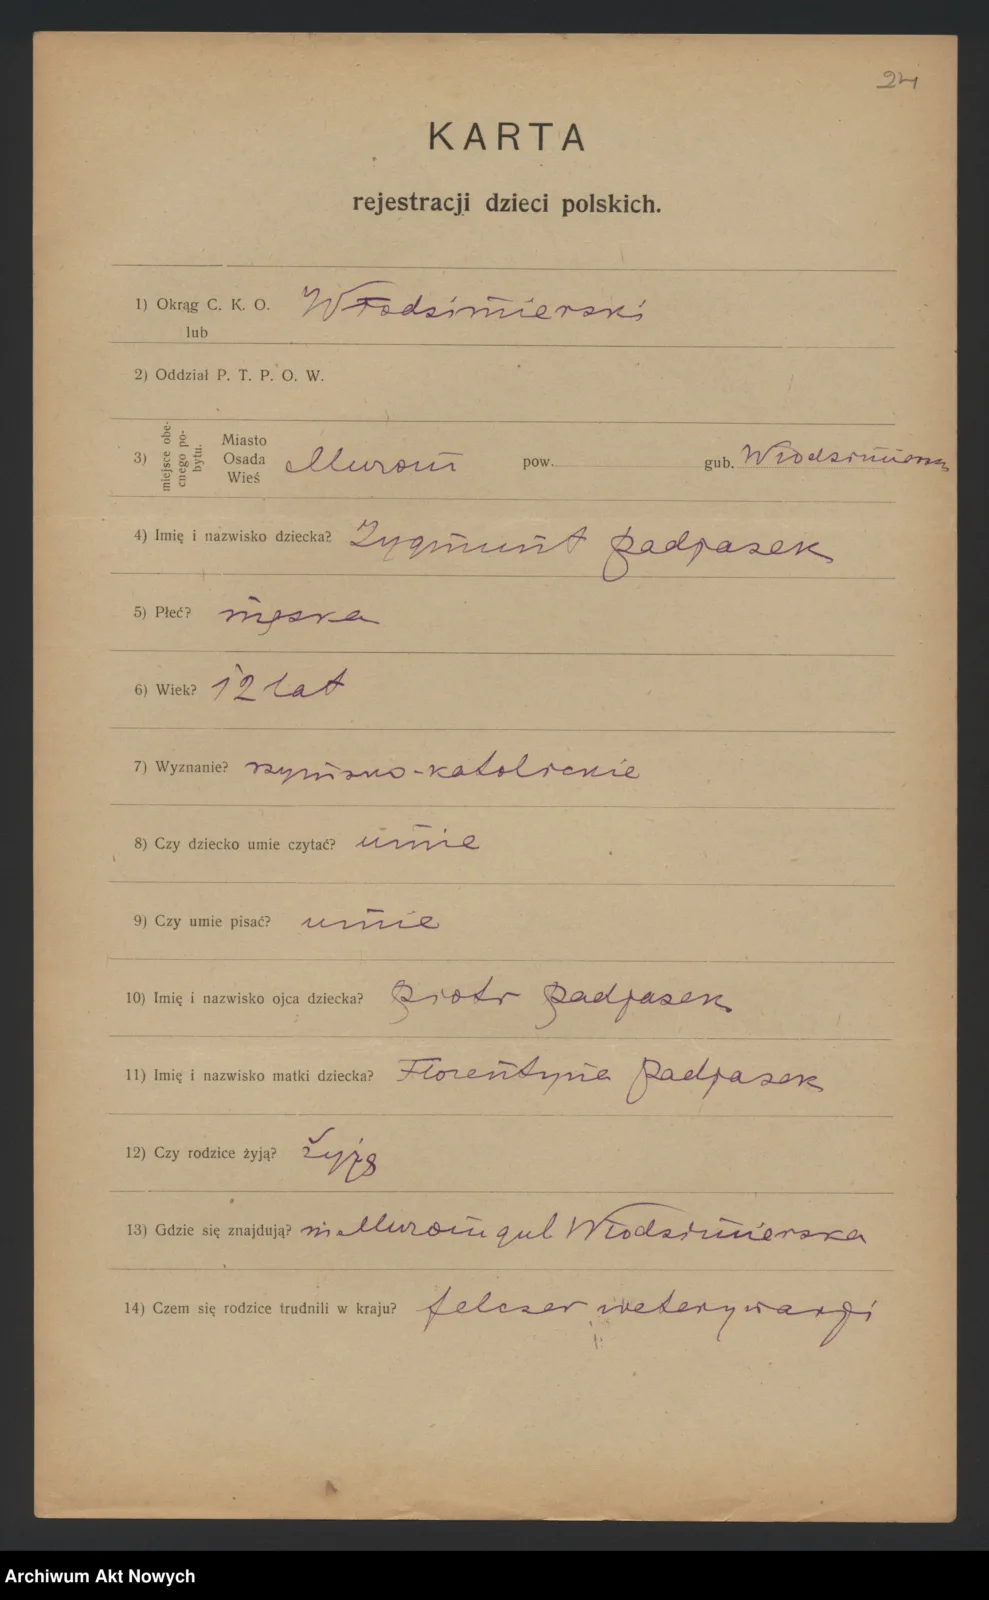 24
KARTA
rejestracji dzieci polskich.
1) Okrąg C. K. O. Włodzimierski
lub
2) Oddział P. T. P. O. W.
3) miejsce obecnego pobytu. Miasto Osada Wieś Murom pow. gub. Włodzimierska
4) Imię i nazwisko dziecka? Zygmunt Padpasek
5) Płeć? męska
6) Wiek? 12 lat
7) Wyznanie? rzymsko-katolickie
8) Czy dziecko umie czytać? umie
9) Czy umie pisać? umie
10) Imię i nazwisko ojca dziecka? Piotr Padpasek
11) Imię i nazwisko matki dziecka? Florentyna Padpasek
12) Czy rodzice żyją? żyją
13) Gdzie się znajdują? m. Murom gub Włodzimierska
14) Czem się rodzice trudnili w kraju? felczer weterynarji
Archiwum Akt Nowych